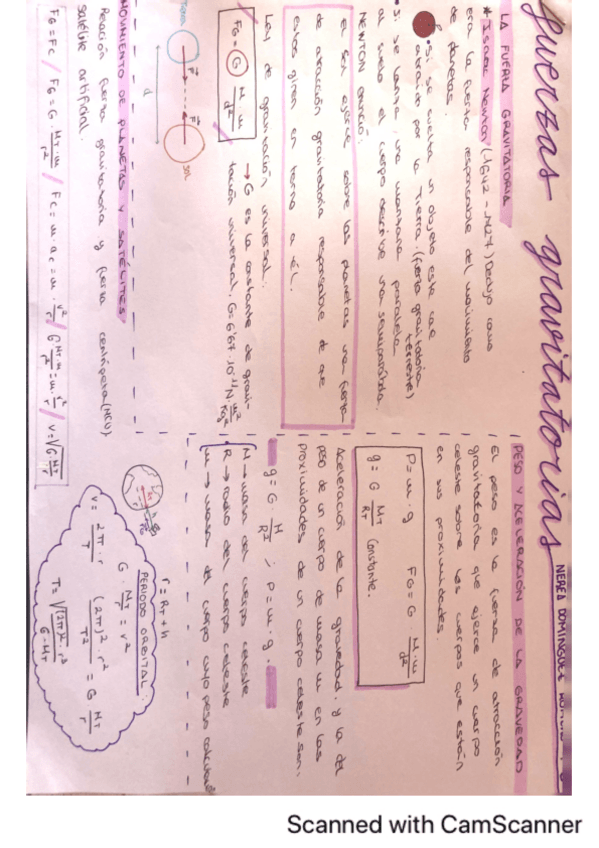 fuerzas gravitatorias
NEREA DOMÍNGUEZ
LA FUERZA GRAVITATORIA
* Isaac Newton (1642 - 1727) Dedujo como
era la fuerza responsable del movimiento
de planetas.
• Si se suelta un objeto este cae
atraído por la Tierra. (fuerza gravitatoria
terrestre)
• Si se lanza una manzana paralela
al suelo el cuerpo describe una semiparábola.
NEWTON
El Sol ejerce sobre los planetas una fuerza
de atracción gravitatoria responsable de que
estos giren en torno a él.
Ley de gravitación universal.
FG = G M·m/d²
→ G es la constante de gravi-
tación universal. G = 6'67·10⁻¹¹ N m²/Kg²
Tierra
F F
Sol
d
MOVIMIENTO DE PLANETAS Y SATÉLITES
Relación fuerza gravitatoria y fuerza centrípeta (MCU)
satélite artificial.
FG = FC / FG = G · MT·m/r² / FC = m·ac = m · v²/r / G MT·m/r² = m · v²/r / v = √G·MT/r
PESO Y ACELERACIÓN DE LA GRAVEDAD
El peso es la fuerza de atracción
gravitatoria que ejerce un cuerpo
celeste sobre los cuerpos que están
en sus proximidades.
P = m · g FG = G M·m/d²
g = G MT/RT Constante.
Aceleración de la gravedad y la del
peso de un cuerpo de masa m en las
proximidades de un cuerpo celeste son:
g = G · M/R² ; P = m · g
M → masa del cuerpo celeste
R → radio del cuerpo celeste
m → masa del cuerpo cuyo peso calculo
r = RT + h
PERIODO ORBITAL
G · MT/r = v²
v = 2π·r/T (2π)²·r²/T² = G MT/r